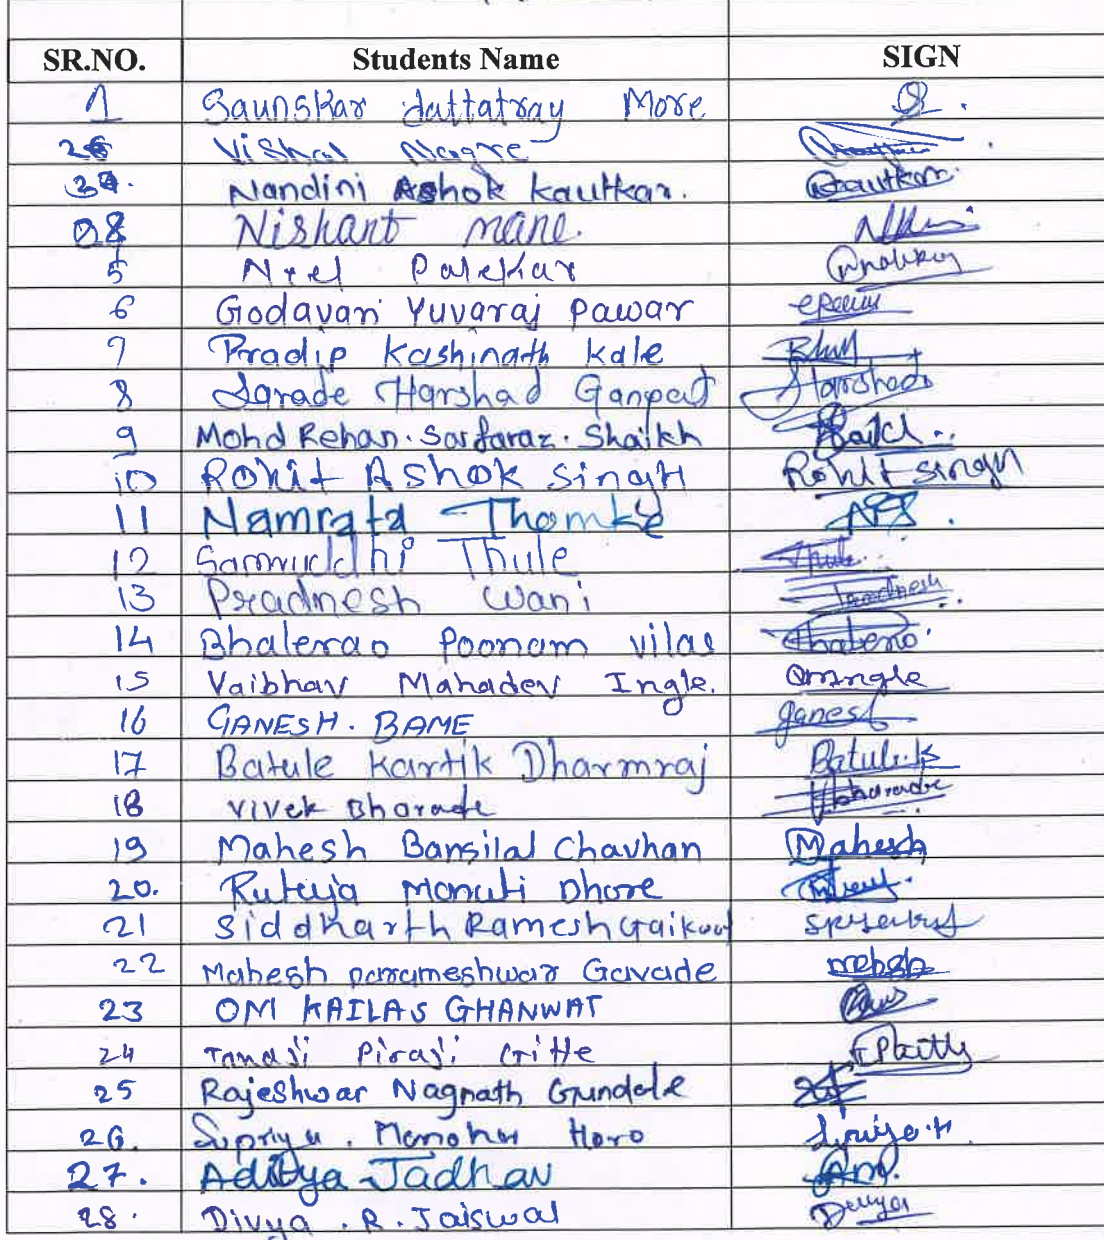 SR.NO. Students Name SIGN
1 Saunskar dattatray More
2 Vishal Nagre
3. Nandini Ashok Kautkar. Gautkar
Nishant mane.
5 Neel Palekar
6 Godavari Yuvaraj Pawar
7 Pradip Kashinath Kale
8 Sarade Harshad Ganpat Harshad
9 Mohd Rehan. Sarfaraz. Shaikh
10 ROHIT ASHOK Singh Rohit singh
11 Namrata Thomke
12 Samruddhi Thule Thule
13 Pradnesh Wani Pradnesh
14 Bhalerao Poonam vilas
15 Vaibhav Mahadev Ingle. Ingle
16 GANESH. BAME ganesh
17 Batule Kartik Dharmraj Batule.K
18 Vivek Bhorade
19 Mahesh Bansilal Chavhan Mahesh
20. Rutuja Maruti Dhore
21 Siddharth Ramesh Gaikwad
22 Mahesh parameshwar Gavade
23 OM KAILAS GHANWAT
24 Tanaji Piraji Gitte
25 Rajeshwar Nagnath Gundale
26. Supriya. Manohar Horo
27. Aditya Jadhav
28. Divya. R. Jaiswal Divya